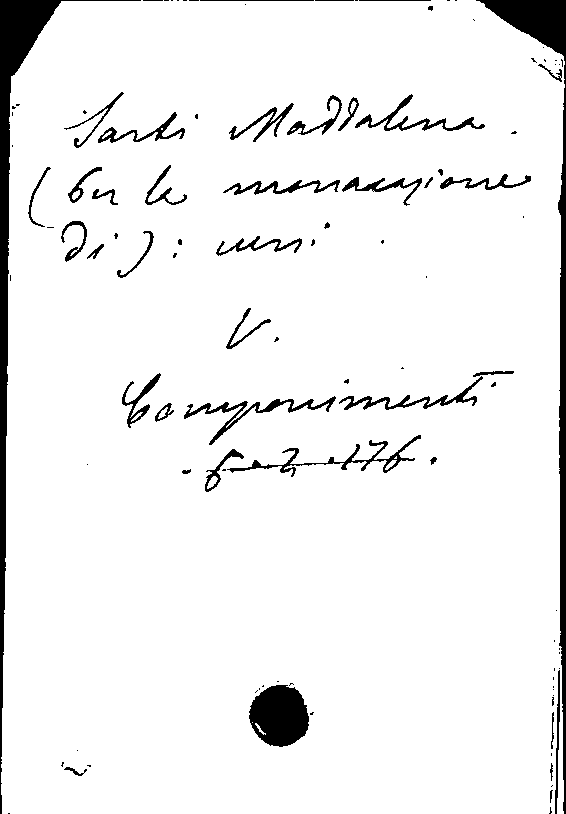 Sarti Maddalena.
(Per la monacazione
di): versi.
V.
Componimenti
. 6 . 2 . 176 .